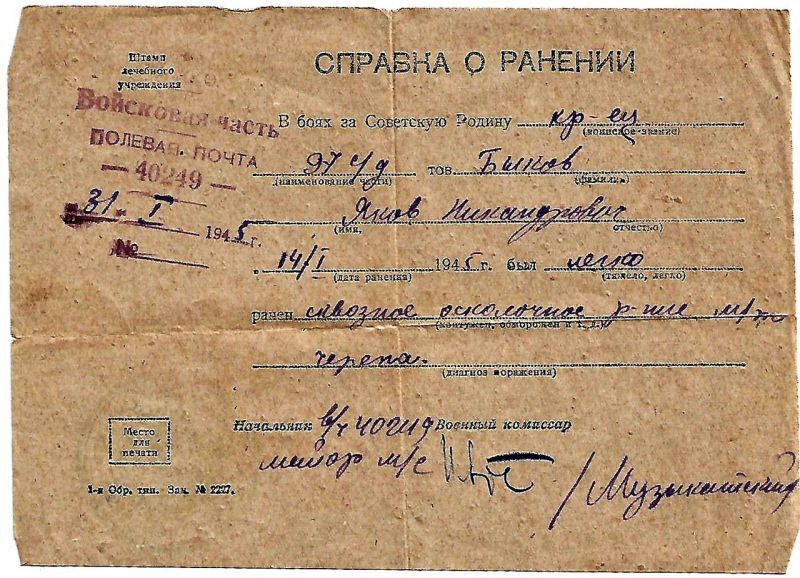 Штамп
лечебного
учреждения
Войсковая часть
ПОЛЕВАЯ ПОЧТА
— 40249 —
31. I 1945 г.
№
СПРАВКА О РАНЕНИИ
В боях за Советскую Родину кр-ец
(воинское звание)
97 с/д тов Быков
(наименование части) (фамилия)
Яков Никандрович
(имя, отчество)
14/I 1945 г. был легко
(дата ранения) (тяжело, легко)
ранен сквозное осколочное р-ние м/тк
(контужен, обморожен и т. д.)
черепа.
(диагноз поражения)
Начальник в/ч 40249 Военный комиссар
майор м/с
/Музыкантский
Место
для
печати
1-я Обр. тип. Зак. № 2227.